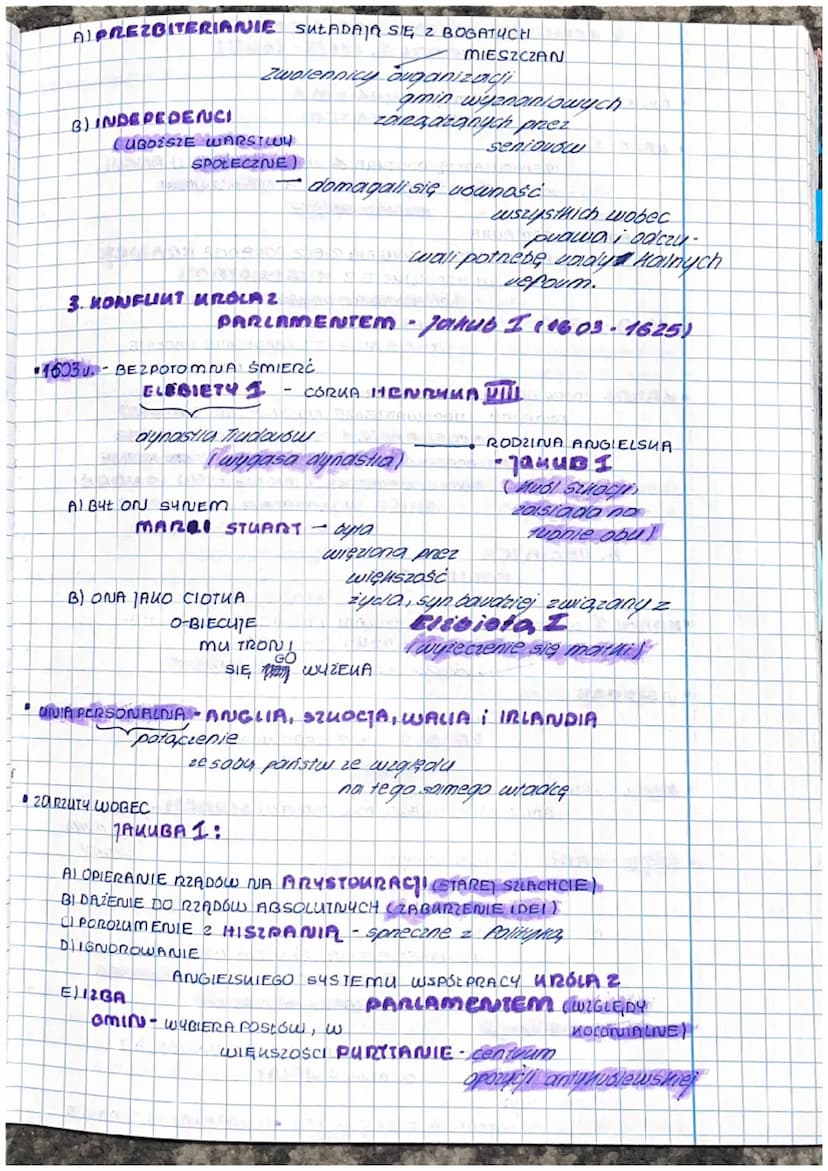 A) PREZBITERIANIE SKŁADAJĄ SIĘ Z BOGATYCH
MIESZCZAN
Zwolennicy organizacji
gmin wyznaniowych
zarządzanych przez
seniorów
B) INDEPEDENCI
(UBOŻSZE WARSTWY
SPOŁECZNE)
domagali się równość
wszystkich wobec
prawa i odczu-
wali potrzebę radykalnych
reform.
3. KONFLIKT KRÓLA Z
PARLAMENTEM - Jakub I (1603 - 1625)
• 1603 r. - BEZPOTOMNA ŚMIERĆ
ELŻBIETY I - CÓRKA HENRYKA VIII
dynastia Tudorów
(wygasa dynastia)
RODZINA ANGIELSKA
- JAKUB I
(król Szkocji,
zasiada na
tronie obu)
A) BYŁ ON SYNEM
MARII STUART - była
więziona przez
większość
życia, syn bardziej związany z
Elżbietą I
(wyrzeczenie się matki)
B) ONA JAKO CIOTKA
O-BIECUJE
MU TRON I
SIĘ GO WYŻEKA
• UNIA PERSONALNA - ANGLIA, SZKOCJA, WALIA i IRLANDIA
połączenie
ze sobą państw ze względu
na tego samego władcę
• ZARZUTY WOBEC
JAKUBA I:
A) OPIERANIE RZĄDÓW NA ARYSTOKRACJI (STAREJ SZLACHCIE)
B) DĄŻENIE DO RZĄDÓW ABSOLUTNYCH (ZABURZENIE IDEI)
C) POROZUMIENIE Z HISZPANIĄ - sprzeczne z Polityką
D) IGNOROWANIE
ANGIELSKIEGO SYSTEMU WSPÓŁPRACY KRÓLA Z
PARLAMENTEM (WZGLĘDY
KOLONIALNE)
E) IZBA
GMIN - WYBIERA POSŁÓW, W
WIĘKSZOŚCI PURYTANIE - centrum
opozycji antykrólewskiej